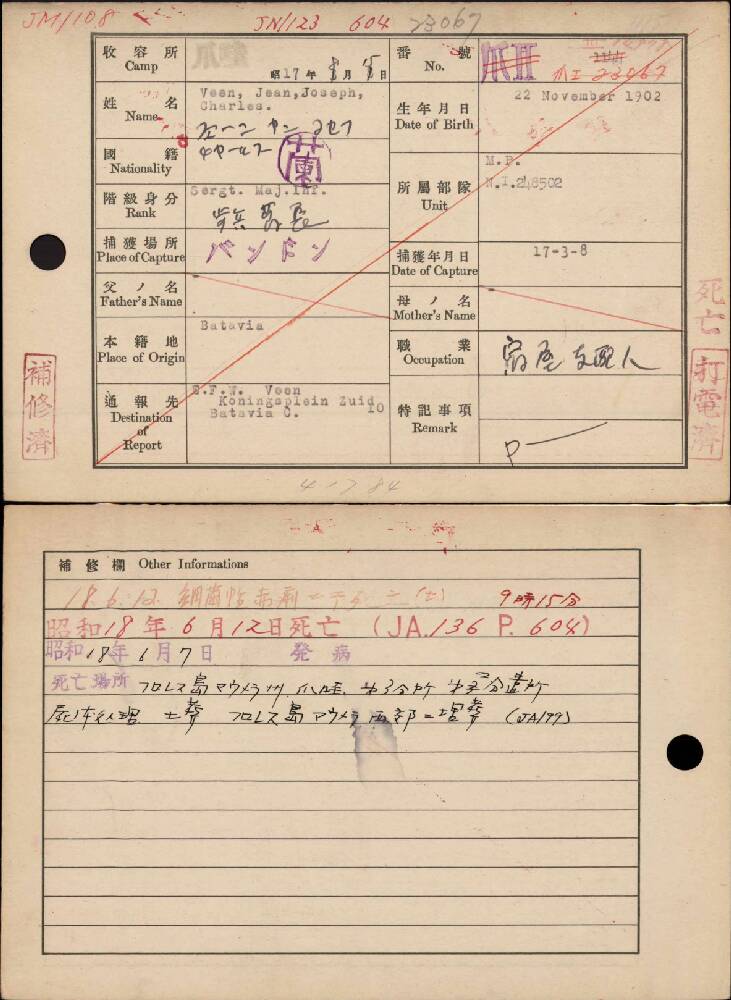 JM/108
JN/123 604 23067
收容所 Camp
昭17年 月 日
番號 No.
23067
姓名 Name
Veen, Jean,Joseph,
Charles.
生年月日 Date of Birth
22 November 1902
國籍 Nationality
蘭
階級身分 Rank
Sergt. Maj.Inf.
所屬部隊 Unit
M.P.
N.I.248502
捕獲場所 Place of Capture
バンドン
捕獲年月日 Date of Capture
17-3-8
父ノ名 Father's Name
母ノ名 Mother's Name
本籍地 Place of Origin
Batavia
職業 Occupation
宿屋支配人
通報先 Destination of Report
S.F.W. Veen
Koningsplein Zuid 10
Batavia C.
特記事項 Remark
P
補修濟
死亡
打電濟
補修欄 Other Informations
18.6.12. 細菌性赤痢ニテ死亡
9時15分
昭和18年6月12日死亡 (JA.136 P. 604)
昭和18年6月7日 発病
死亡場所 フロレス島マウメラ州
土葬 フロレス島マウメラ西部ニ埋葬 (JA199)